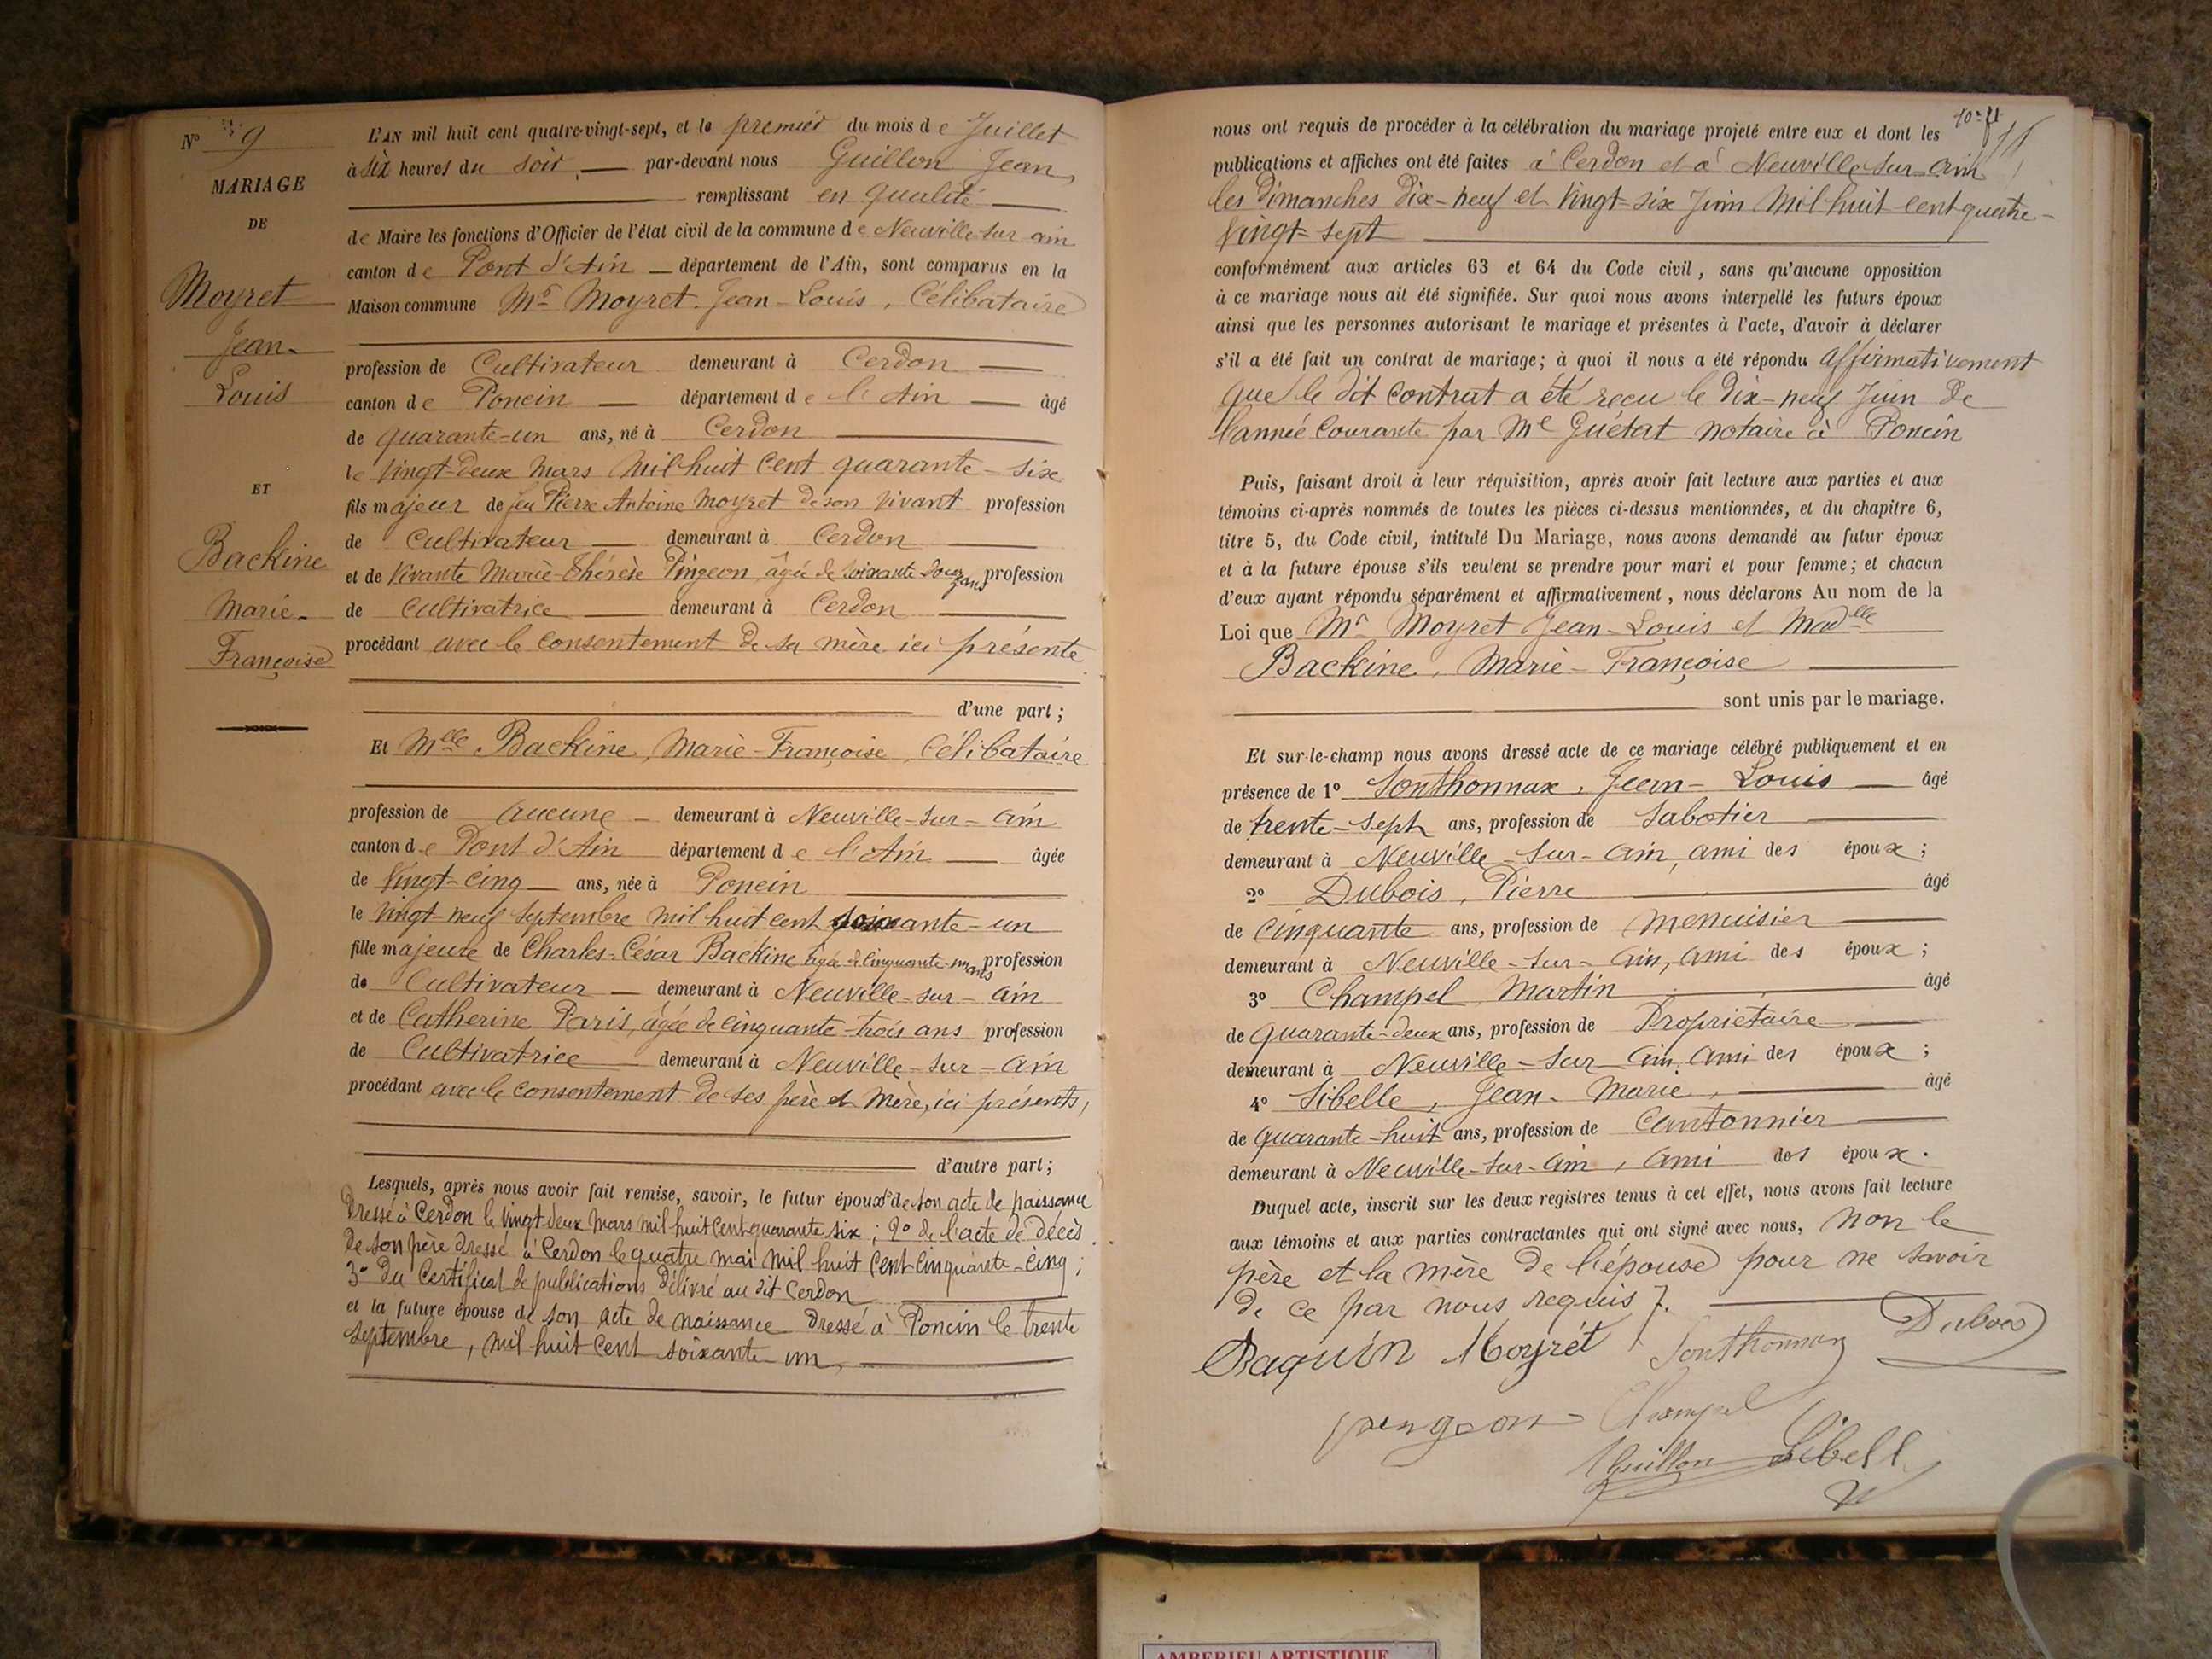 N° 9
MARIAGE
DE
Moyret
Jean-
Louis
ET
Backine
Marie-
Françoise
L'AN mil huit cent quatre-vingt-sept, et le premier du mois de Juillet
à six heures du soir, par-devant nous Guillon Jean,
remplissant en qualité
de Maire les fonctions d'Officier de l'état civil de la commune de Neuville sur ain
canton de Pont d'Ain département de l'Ain, sont comparus en la
Maison commune Mr Moyret Jean-Louis, Célibataire
profession de Cultivateur demeurant à Cerdon
canton de Poncin département de l'Ain âgé
de quarante-un ans, né à Cerdon
le vingt-deux Mars mil huit cent quarante-six
fils majeur de feu Pierre Antoine Moyret de son vivant profession
de Cultivateur demeurant à Cerdon
et de vivante Marie-Thérèse Pingeon, âgée de soixante douze ans profession
de Cultivatrice demeurant à Cerdon
procédant avec le consentement de sa mère ici présente
d'une part ;
Et Melle Backine, Marie-Françoise, Célibataire
profession de aucune demeurant à Neuville-sur-ain
canton de Pont d'Ain département de l'Ain âgée
de vingt-cinq ans, née à Poncin
le vingt-neuf septembre mil huit cent soixante-un
fille majeure de Charles-César Backine âgé de cinquante-un ans profession
de Cultivateur demeurant à Neuville-sur-ain
et de Catherine Paris, âgée de cinquante-trois ans profession
de Cultivatrice demeurant à Neuville-sur-ain
procédant avec le consentement de ses père et mère, ici présents,
d'autre part ;
Lesquels, après nous avoir fait remise, savoir, le futur époux 1° de son acte de naissance
dressé à Cerdon le vingt deux Mars mil huit cent quarante six ; 2° de l'acte de décès
de son père dressé à Cerdon le quatre mai mil huit cent cinquante-cinq ;
3° du Certificat de publications délivré au dit Cerdon
et la future épouse de son acte de naissance dressé à Poncin le trente
septembre, mil huit cent soixante-un,
10-11
nous ont requis de procéder à la célébration du mariage projeté entre eux et dont les
publications et affiches ont été faites à Cerdon et à Neuville-sur-ain
les dimanches dix-neuf et vingt-six Juin mil huit cent quatre-
vingt-sept
conformément aux articles 63 et 64 du Code civil, sans qu'aucune opposition
à ce mariage nous ait été signifiée. Sur quoi nous avons interpellé les futurs époux
ainsi que les personnes autorisant le mariage et présentes à l'acte, d'avoir à déclarer
s'il a été fait un contrat de mariage ; à quoi il nous a été répondu affirmativement
que le dit contrat a été reçu le dix-neuf Juin de
l'année courante par Me Guétat notaire à Poncin
Puis, faisant droit à leur réquisition, après avoir fait lecture aux parties et aux
témoins ci-après nommés de toutes les pièces ci-dessus mentionnées, et du chapitre 6,
titre 5, du Code civil, intitulé Du Mariage, nous avons demandé au futur époux
et à la future épouse s'ils veulent se prendre pour mari et pour femme ; et chacun
d'eux ayant répondu séparément et affirmativement, nous déclarons Au nom de la
Loi que Mr Moyret Jean-Louis et Madlle
Backine, Marie-Françoise
sont unis par le mariage.
Et sur-le-champ nous avons dressé acte de ce mariage célébré publiquement et en
présence de 1° Sonthonnax, Jean-Louis âgé
de trente-sept ans, profession de Sabotier
demeurant à Neuville-sur-ain, ami des époux ;
2° Dubois, Pierre âgé
de cinquante ans, profession de Menuisier
demeurant à Neuville-sur-ain, ami des époux ;
3° Champel Martin âgé
de quarante-deux ans, profession de Propriétaire
demeurant à Neuville-sur-ain, ami des époux ;
4° Sibelle, Jean-Marie, âgé
de quarante-huit ans, profession de Cantonnier
demeurant à Neuville-sur-ain, ami des époux.
Duquel acte, inscrit sur les deux registres tenus à cet effet, nous avons fait lecture
aux témoins et aux parties contractantes qui ont signé avec nous, non le
père et la mère de l'épouse pour ne savoir
de ce par nous requis.
Baquin Moyrét Sonthonnax Dubois
pingeon Champel
Guillon Sibell
AMBERIEU ARTISTIQUE